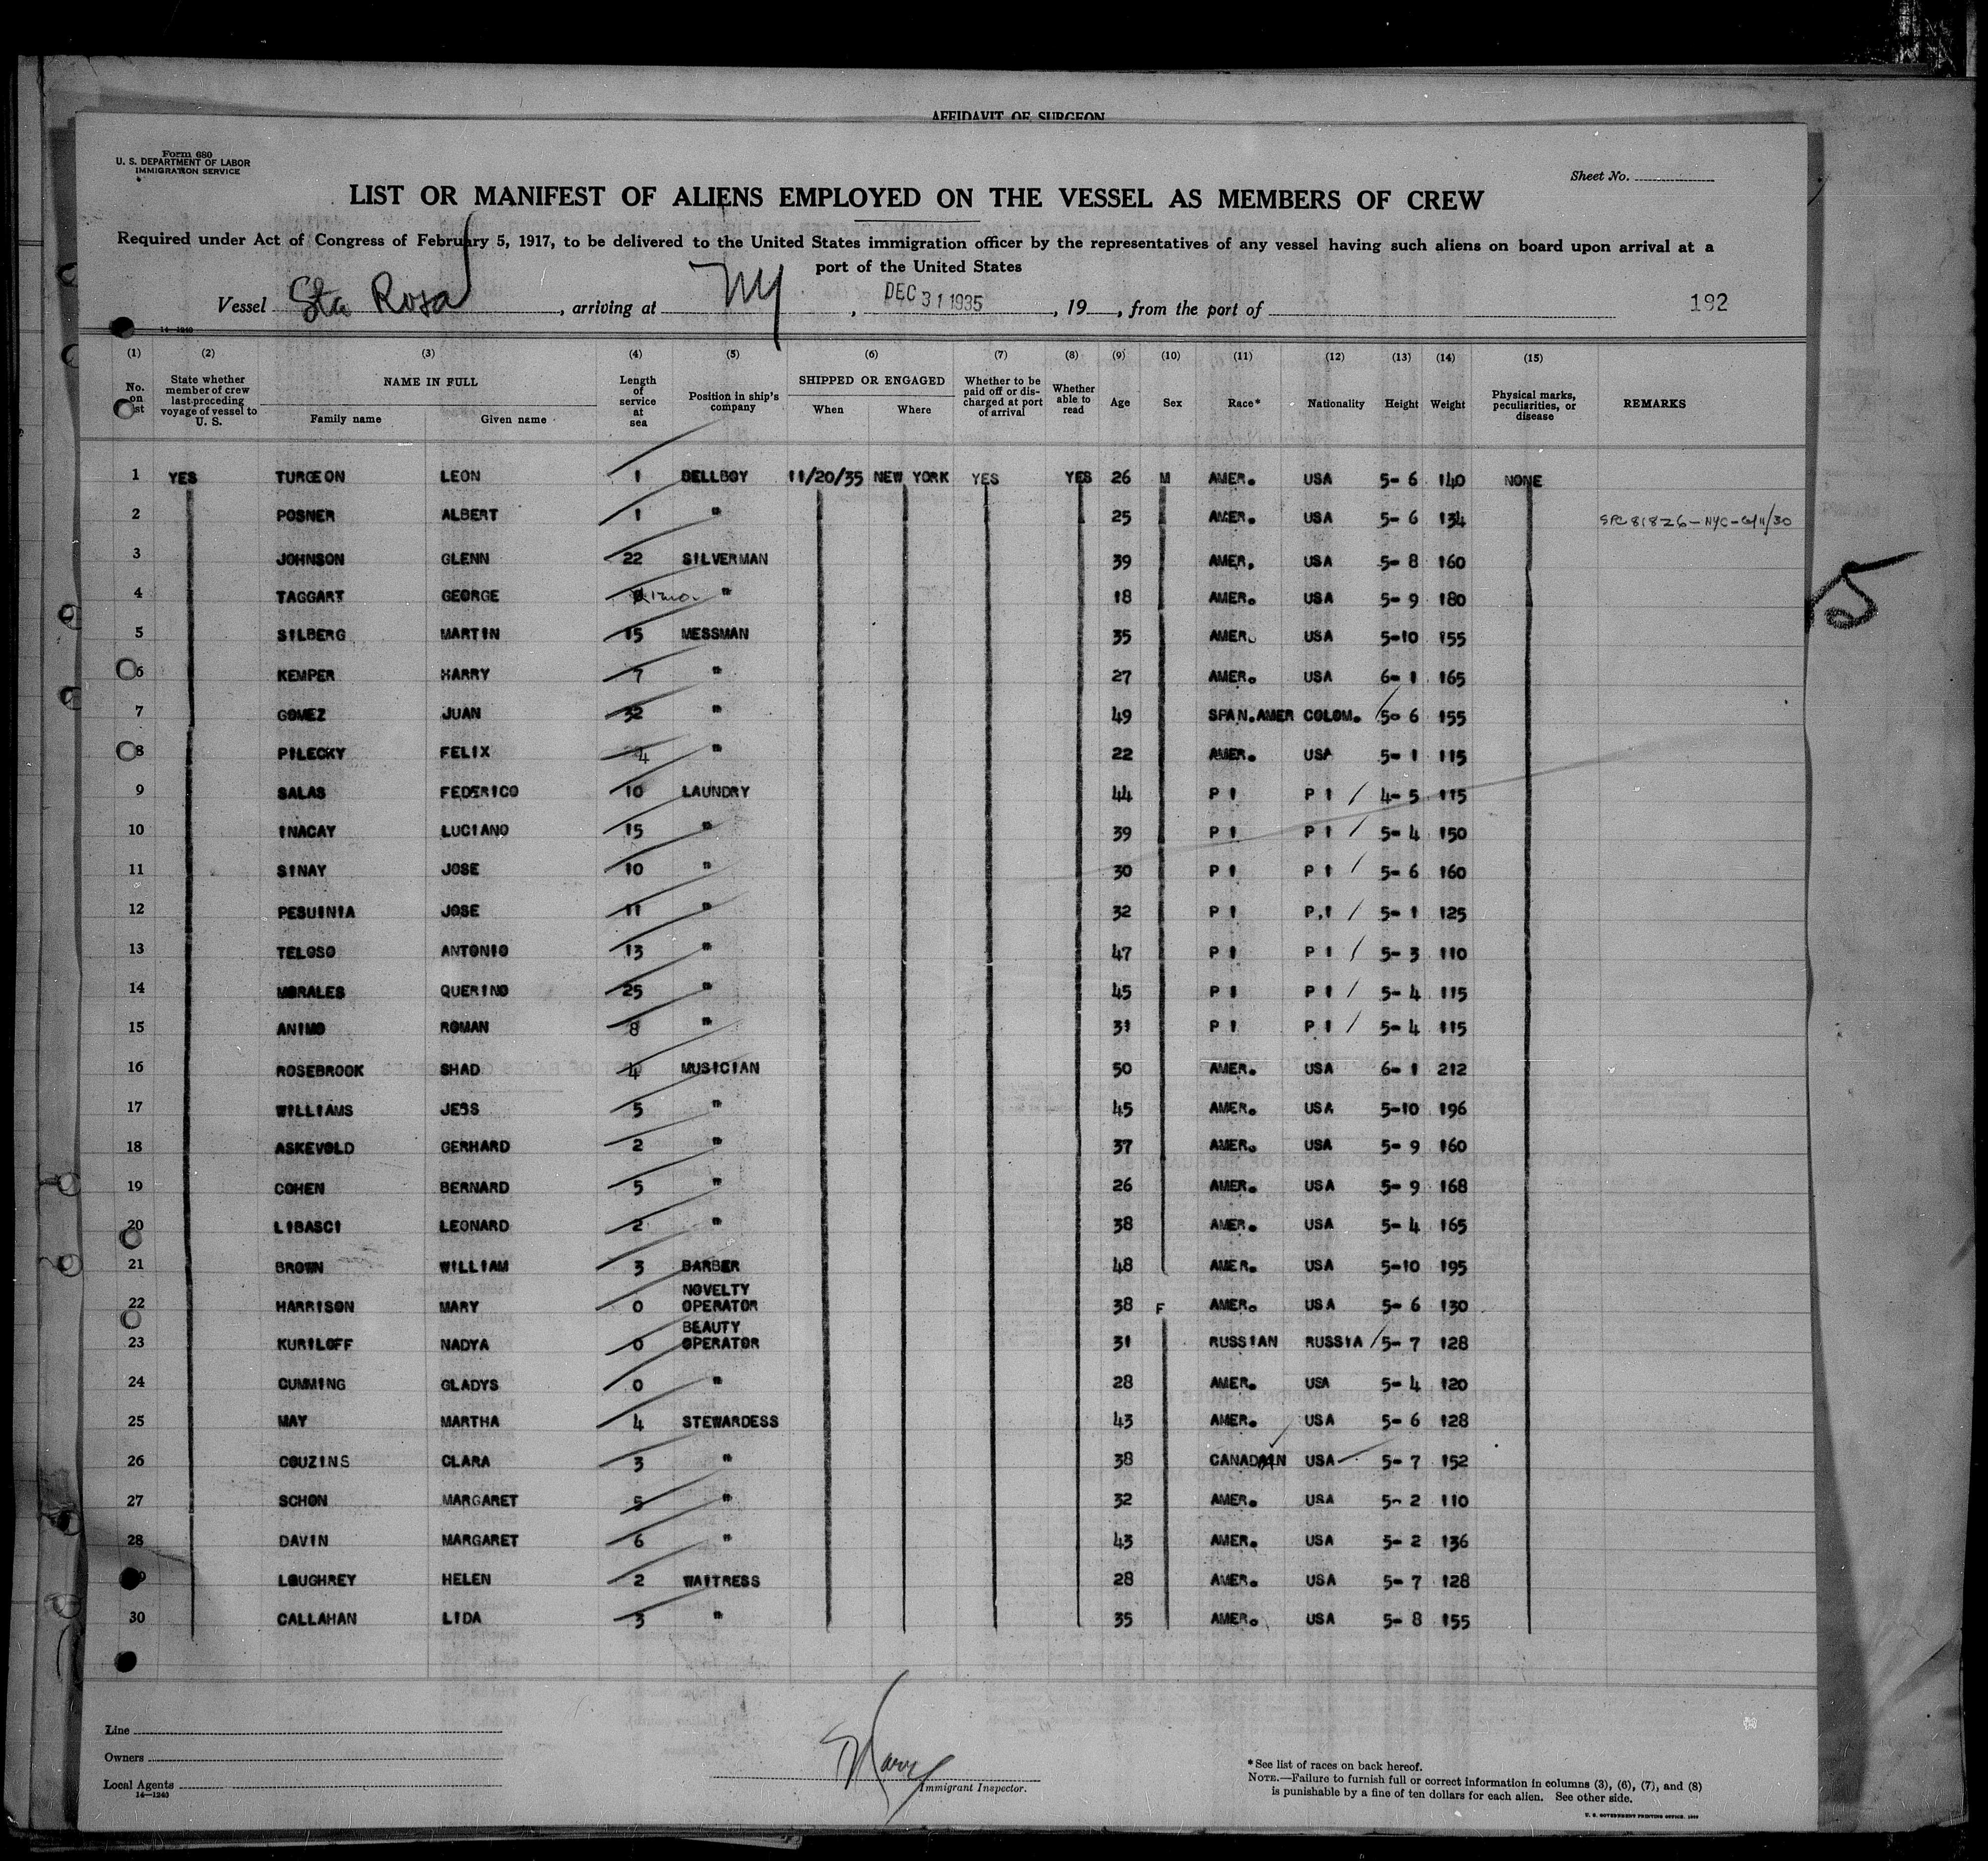 AFFIDAVIT OF SURGEON
Form 680
U. S. DEPARTMENT OF LABOR
IMMIGRATION SERVICE
Sheet No.
LIST OR MANIFEST OF ALIENS EMPLOYED ON THE VESSEL AS MEMBERS OF CREW
Required under Act of Congress of February 5, 1917, to be delivered to the United States immigration officer by the representatives of any vessel having such aliens on board upon arrival at a
port of the United States
Vessel Sta Rosa, arriving at NY, DEC 31 1935, 19, from the port of 192
14—1240
(1) (2) (3) (4) (5) (6) (7) (8) (9) (10) (11) (12) (13) (14) (15)
No. on list
State whether member of crew last preceding voyage of vessel to U. S.
NAME IN FULL
Family name Given name
Length of service at sea
Position in ship's company
SHIPPED OR ENGAGED
When Where
Whether to be paid off or discharged at port of arrival
Whether able to read
Age
Sex
Race*
Nationality
Height
Weight
Physical marks, peculiarities, or disease
REMARKS
1 YES TURGEON LEON 1 BELLBOY 11/20/35 NEW YORK YES YES 26 M AMER. USA 5-6 140 NONE
2 POSNER ALBERT 1 " 25 AMER. USA 5-6 134
3 JOHNSON GLENN 22 SILVERMAN 39 AMER. USA 5-8 160
4 TAGGART GEORGE 1mo. " 18 AMER. USA 5-9 180
5 SILBERG MARTIN 15 MESSMAN 35 AMER. USA 5-10 155
6 KEMPER HARRY 7 " 27 AMER. USA 6-1 165
7 GOMEZ JUAN 32 " 49 SPAN.AMER COLOM. 5-6 155
8 PILECKY FELIX 4 " 22 AMER. USA 5-1 115
9 SALAS FEDERICO 10 LAUNDRY 44 P I P I 4-5 115
10 INACAY LUCIANO 15 " 39 P I P I 5-4 150
11 SINAY JOSE 10 " 30 P I P I 5-6 160
12 PESUINIA JOSE 11 " 32 P I P.I 5-1 125
13 TELOSO ANTONIO 13 " 47 P I P I 5-3 110
14 MORALES QUERINO 25 " 45 P I P I 5-4 115
15 ANIMO ROMAN 8 " 31 P I P I 5-4 115
16 ROSEBROOK SHAD 4 MUSICIAN 50 AMER. USA 6-1 212
17 WILLIAMS JESS 5 " 45 AMER. USA 5-10 196
18 ASKEVOLD GERHARD 2 " 37 AMER. USA 5-9 160
19 COHEN BERNARD 5 " 26 AMER. USA 5-9 168
20 LIBASCI LEONARD 2 " 38 AMER. USA 5-4 165
21 BROWN WILLIAM 3 BARBER 48 AMER. USA 5-10 195
22 HARRISON MARY 0 NOVELTY OPERATOR 38 F AMER. USA 5-6 130
23 KURILOFF NADYA 0 BEAUTY OPERATOR 31 RUSSIAN RUSSIA 5-7 128
24 CUMMING GLADYS 0 " 28 AMER. USA 5-4 120
25 MAY MARTHA 4 STEWARDESS 43 AMER. USA 5-6 128
26 COUZINS CLARA 3 " 38 CANADIAN USA 5-7 152
27 SCHON MARGARET 5 " 32 AMER. USA 5-2 110
28 DAVIN MARGARET 6 " 43 AMER. USA 5-2 136
LOUGHREY HELEN 2 WAITRESS 28 AMER. USA 5-7 128
30 CALLAHAN LIDA 3 " 35 AMER. USA 5-8 155
5
Line
Owners
Local Agents
14—1240
Immigrant Inspector.
*See list of races on back hereof.
NOTE.—Failure to furnish full or correct information in columns (3), (6), (7), and (8)
is punishable by a fine of ten dollars for each alien. See other side.